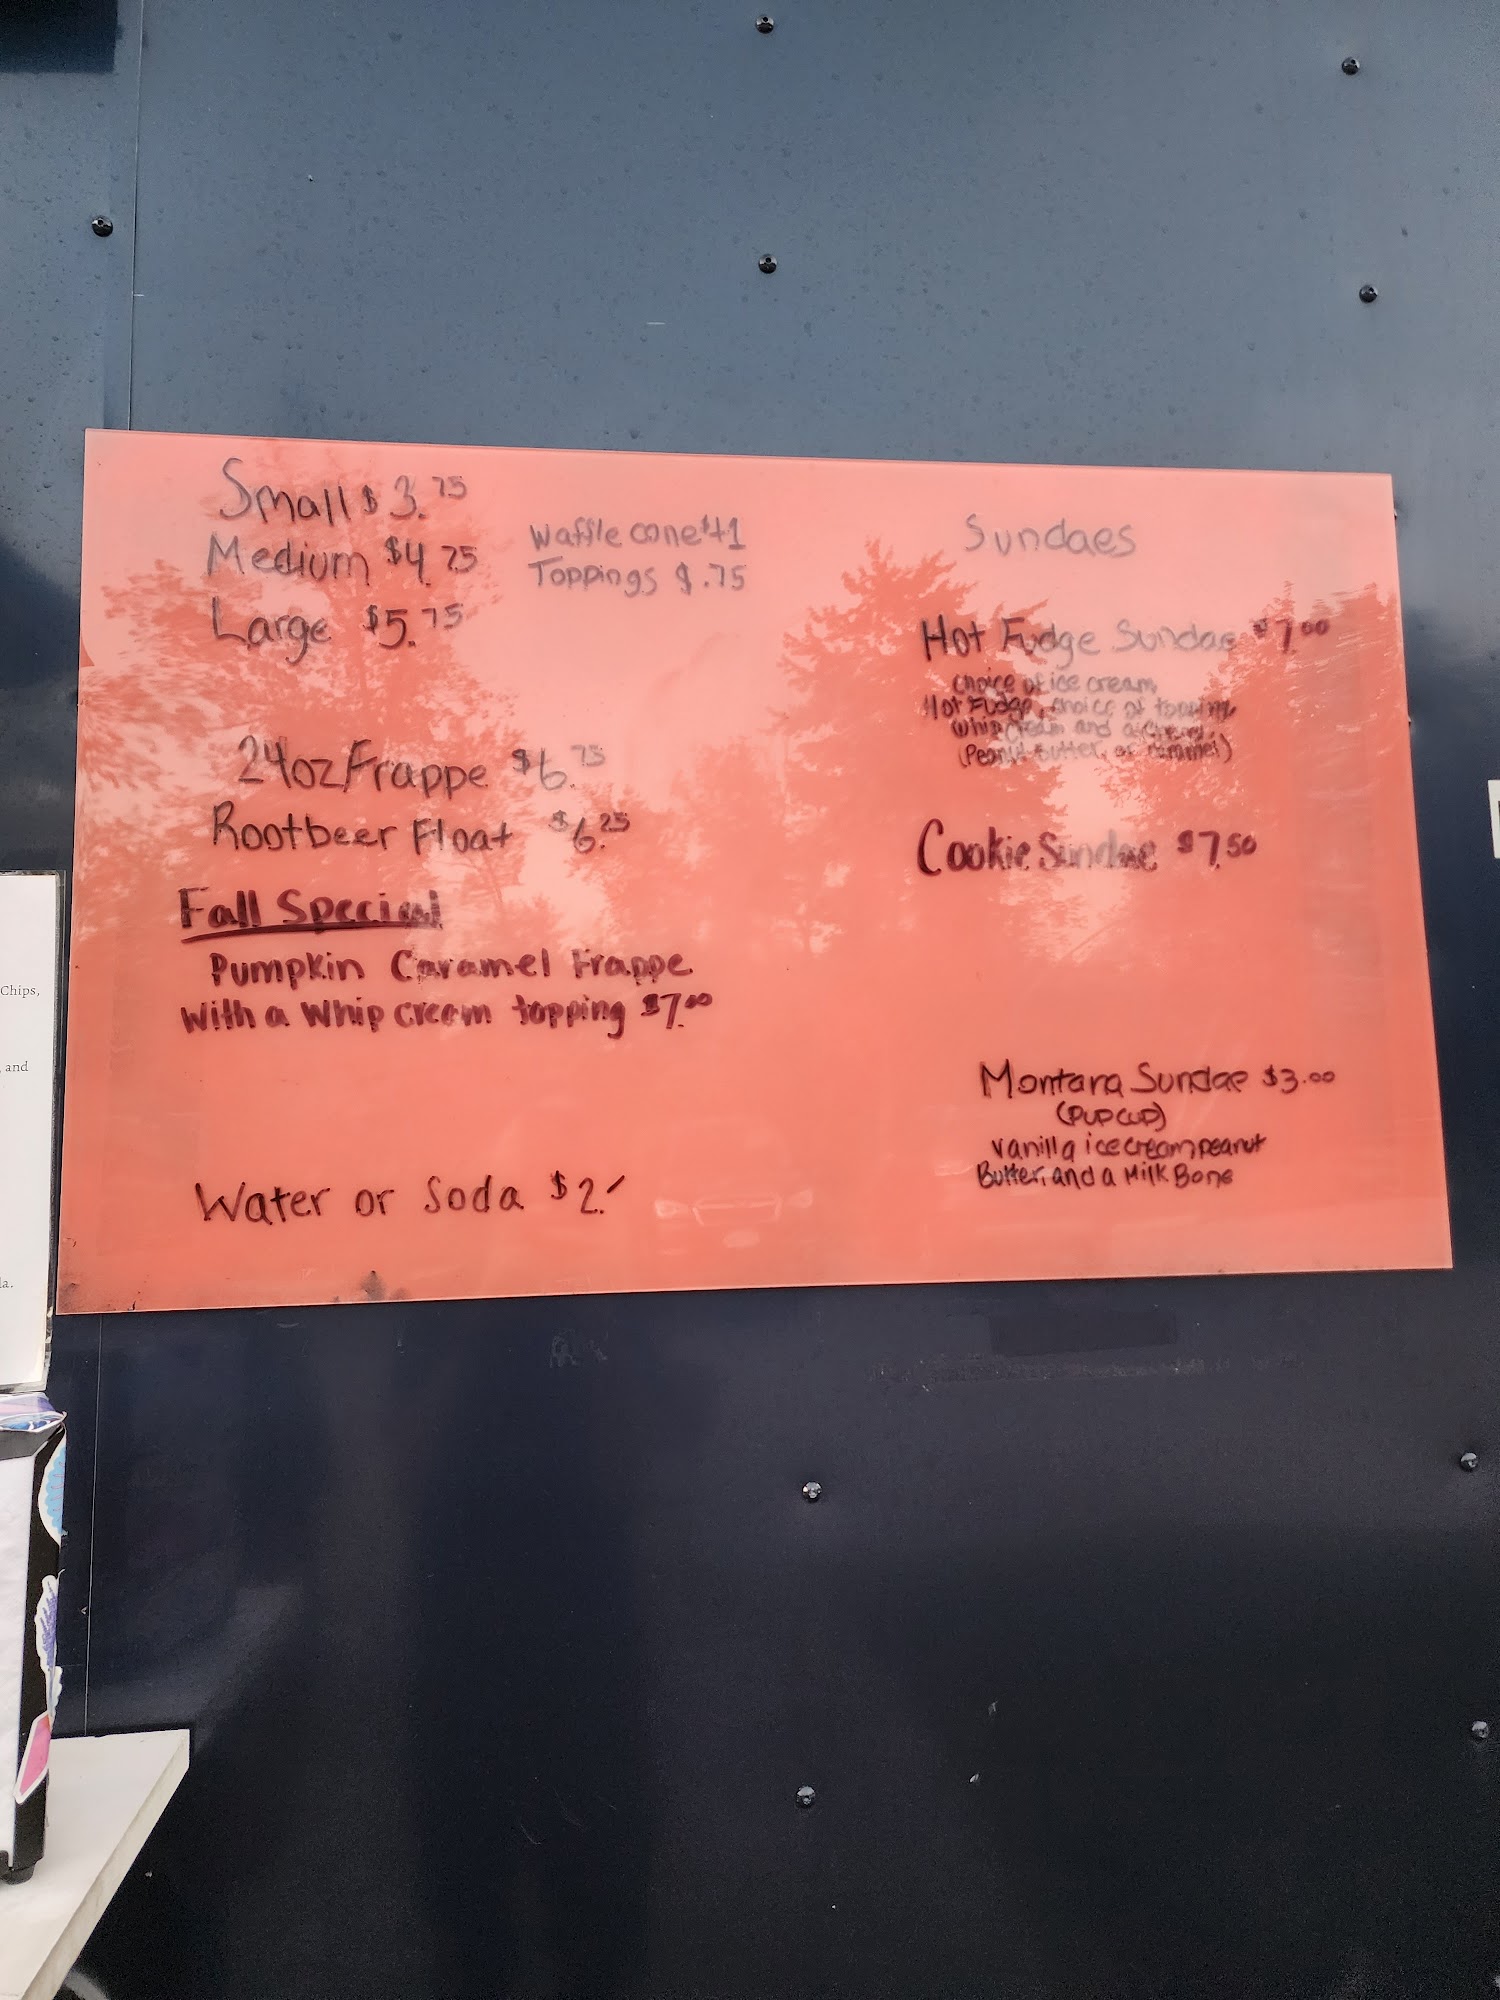 Small $3.75
Medium $4.75
Large $5.75
Waffle cone $+1
Toppings $.75
24oz/Frappe $6.75
Rootbeer Float $6.25
Fall Special
Pumpkin Caramel Frappe
With a Whip cream topping $7.00
Water or Soda $2.
Sundaes
Hot Fudge Sundae $7.00
choice of ice cream,
Hot Fudge, choice of topping
whip cream and a cherry.
(Peanut Butter, or caramel)
Cookie Sundae $7.50
Montana Sundae $3.00
(PUP CUP)
vanilla ice cream, peanut
Butter, and a Milk Bone
Chips,
, and
la.